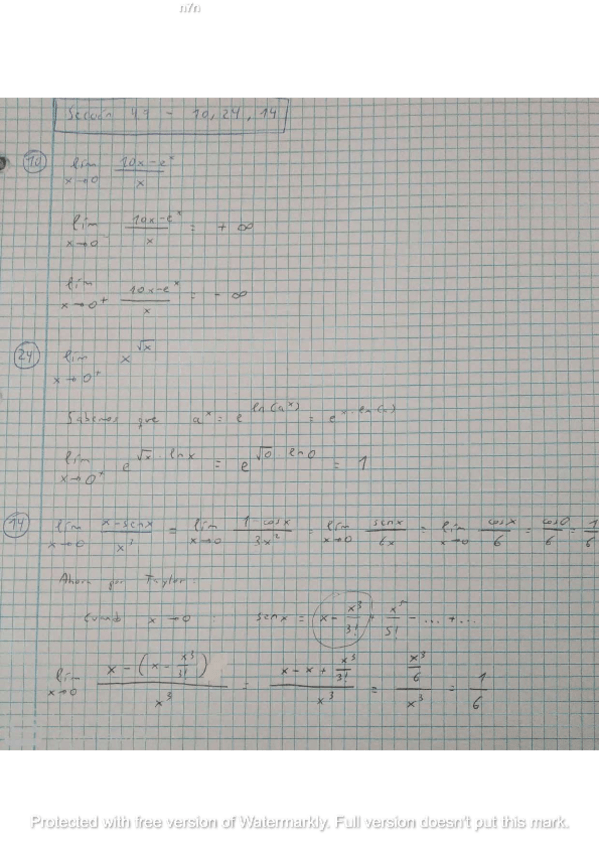 Sección 4.7 - 10, 24, 14
10 lim x→0 (10x-eˣ)/x
lim x→0⁻ (10x-eˣ)/x = +∞
lim x→0⁺ (10x-eˣ)/x = -∞
24 lim x→0⁺ x^√x
Sabemos que aˣ = e^ln(aˣ) = e^x·ln(a)
lim x→0⁺ e^√x · ln x = e^√0 · ln0 = 1
14 lim x→0 (x-senx)/x³ = lim x→0 (1-cosx)/3x² = lim x→0 senx/6x = lim x→0 cosx/6 = cos0/6 = 1/6
Ahora por Taylor:
Cuando x→0 : senx = x - x³/3! + x⁵/5! - ... + ...
lim x→0 (x-(x-x³/3!))/x³ = (x-x+x³/3!)/x³ = (x³/6)/x³ = 1/6
Protected with free version of Watermarkly. Full version doesn't put this mark.